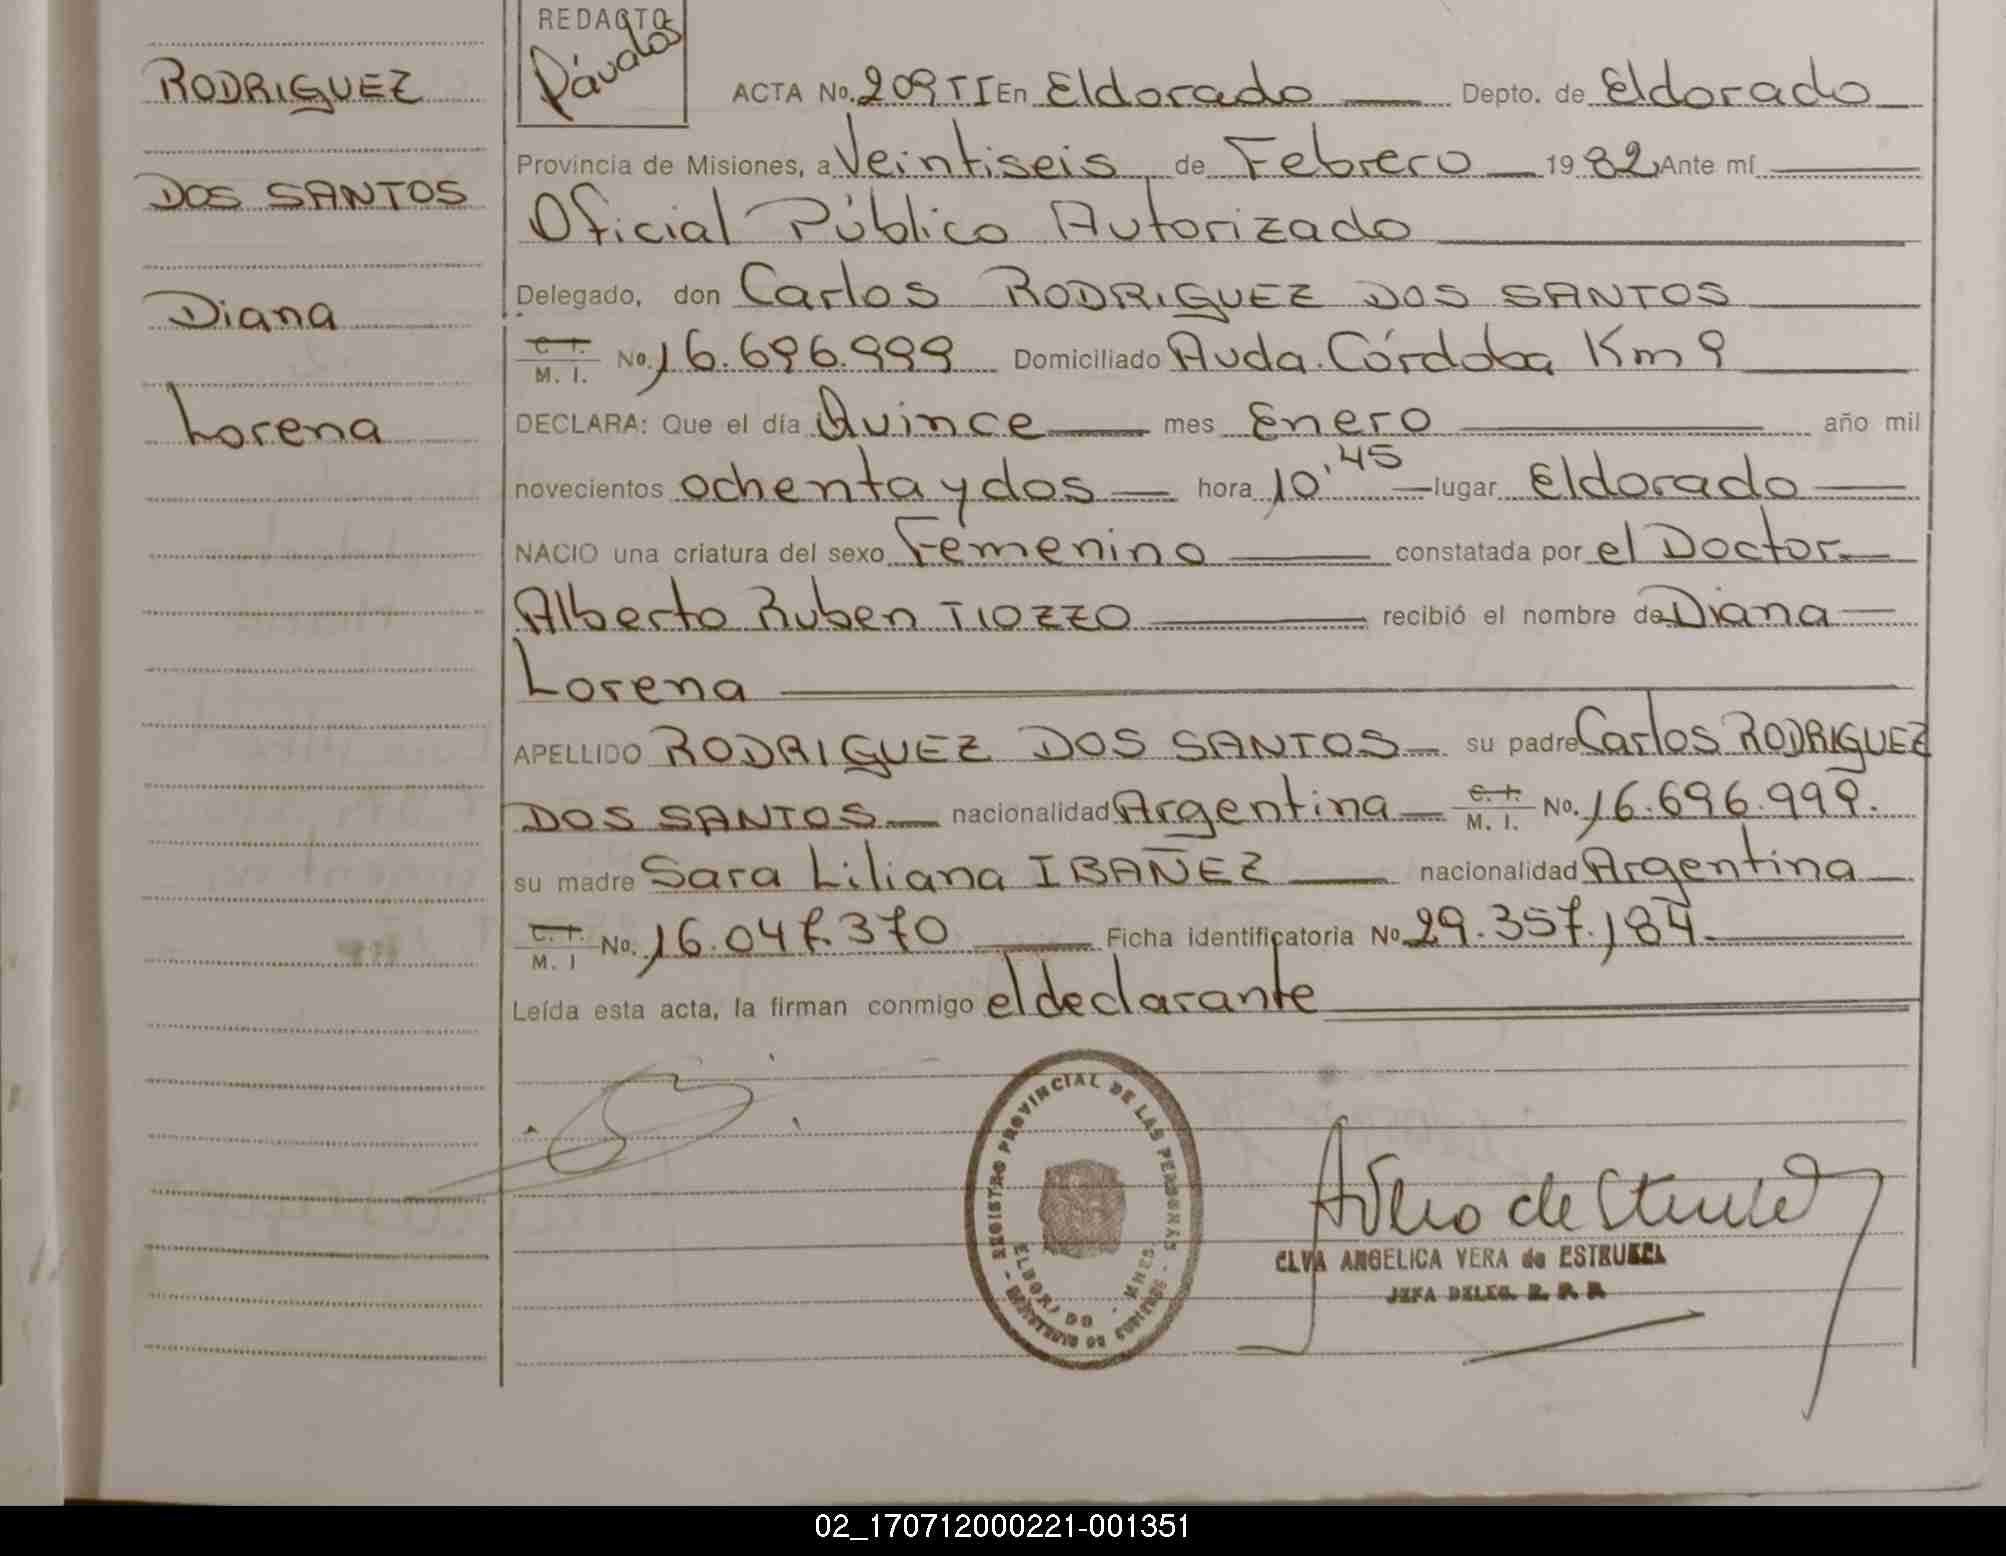 RODRIGUEZ
DOS SANTOS
Diana
Lorena
REDACTO
Dávalos
ACTA No. 209 TI En Eldorado Depto. de Eldorado
Provincia de Misiones, a Veintiseis de Febrero 1982 Ante mí
Oficial Público Autorizado
Delegado, don Carlos RODRIGUEZ DOS SANTOS
C. I. M. I. No. 16.696.999 Domiciliado Avda. Córdoba Km 9
DECLARA: Que el día Quince mes Enero año mil
novecientos ochenta y dos hora 10'45 lugar Eldorado
NACIO una criatura del sexo Femenino constatada por el Doctor
Alberto Ruben TIOZZO recibió el nombre de Diana
Lorena
APELLIDO RODRIGUEZ DOS SANTOS su padre Carlos RODRIGUEZ
DOS SANTOS nacionalidad Argentina C. I. M. I. No. 16.696.999.
su madre Sara Liliana IBAÑEZ nacionalidad Argentina
C. I. M. I No. 16.047.370 Ficha identificatoria No 29.357.184
Leída esta acta, la firman conmigo el declarante
REGISTRO PROVINCIAL DE LAS PERSONAS
ELDORADO - MNES.
MINISTERIO DE GOBIERNO
ELVA ANGELICA VERA de ESTRUBEL
JEFA DELEG. R. P. P.
02_170712000221-001351